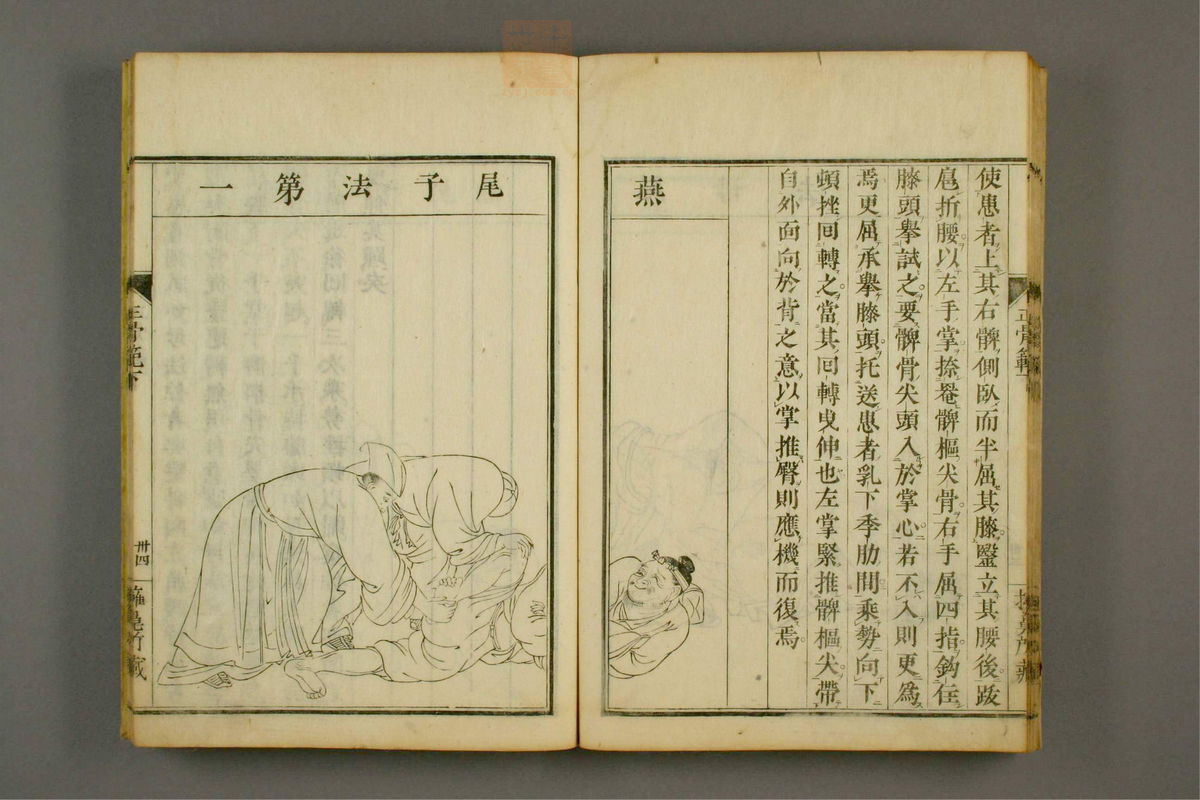 使患者上其右髀側臥而半屈其膝毉立其腰後跋
扈折腰以左手掌捺罨髀樞尖骨右手屈四指鈎住
膝頭擧試之要髀骨尖頭入於掌心若不入則更爲
焉更屈承擧膝頭托送患者乳下季肋間乘勢向下
頓挫囘轉之當其囘轉曳伸也左掌緊推髀樞尖帶
自外面向於背之意以掌推臀則應機而復焉
燕
尾子法第一
正骨範下
正骨範下
卅四